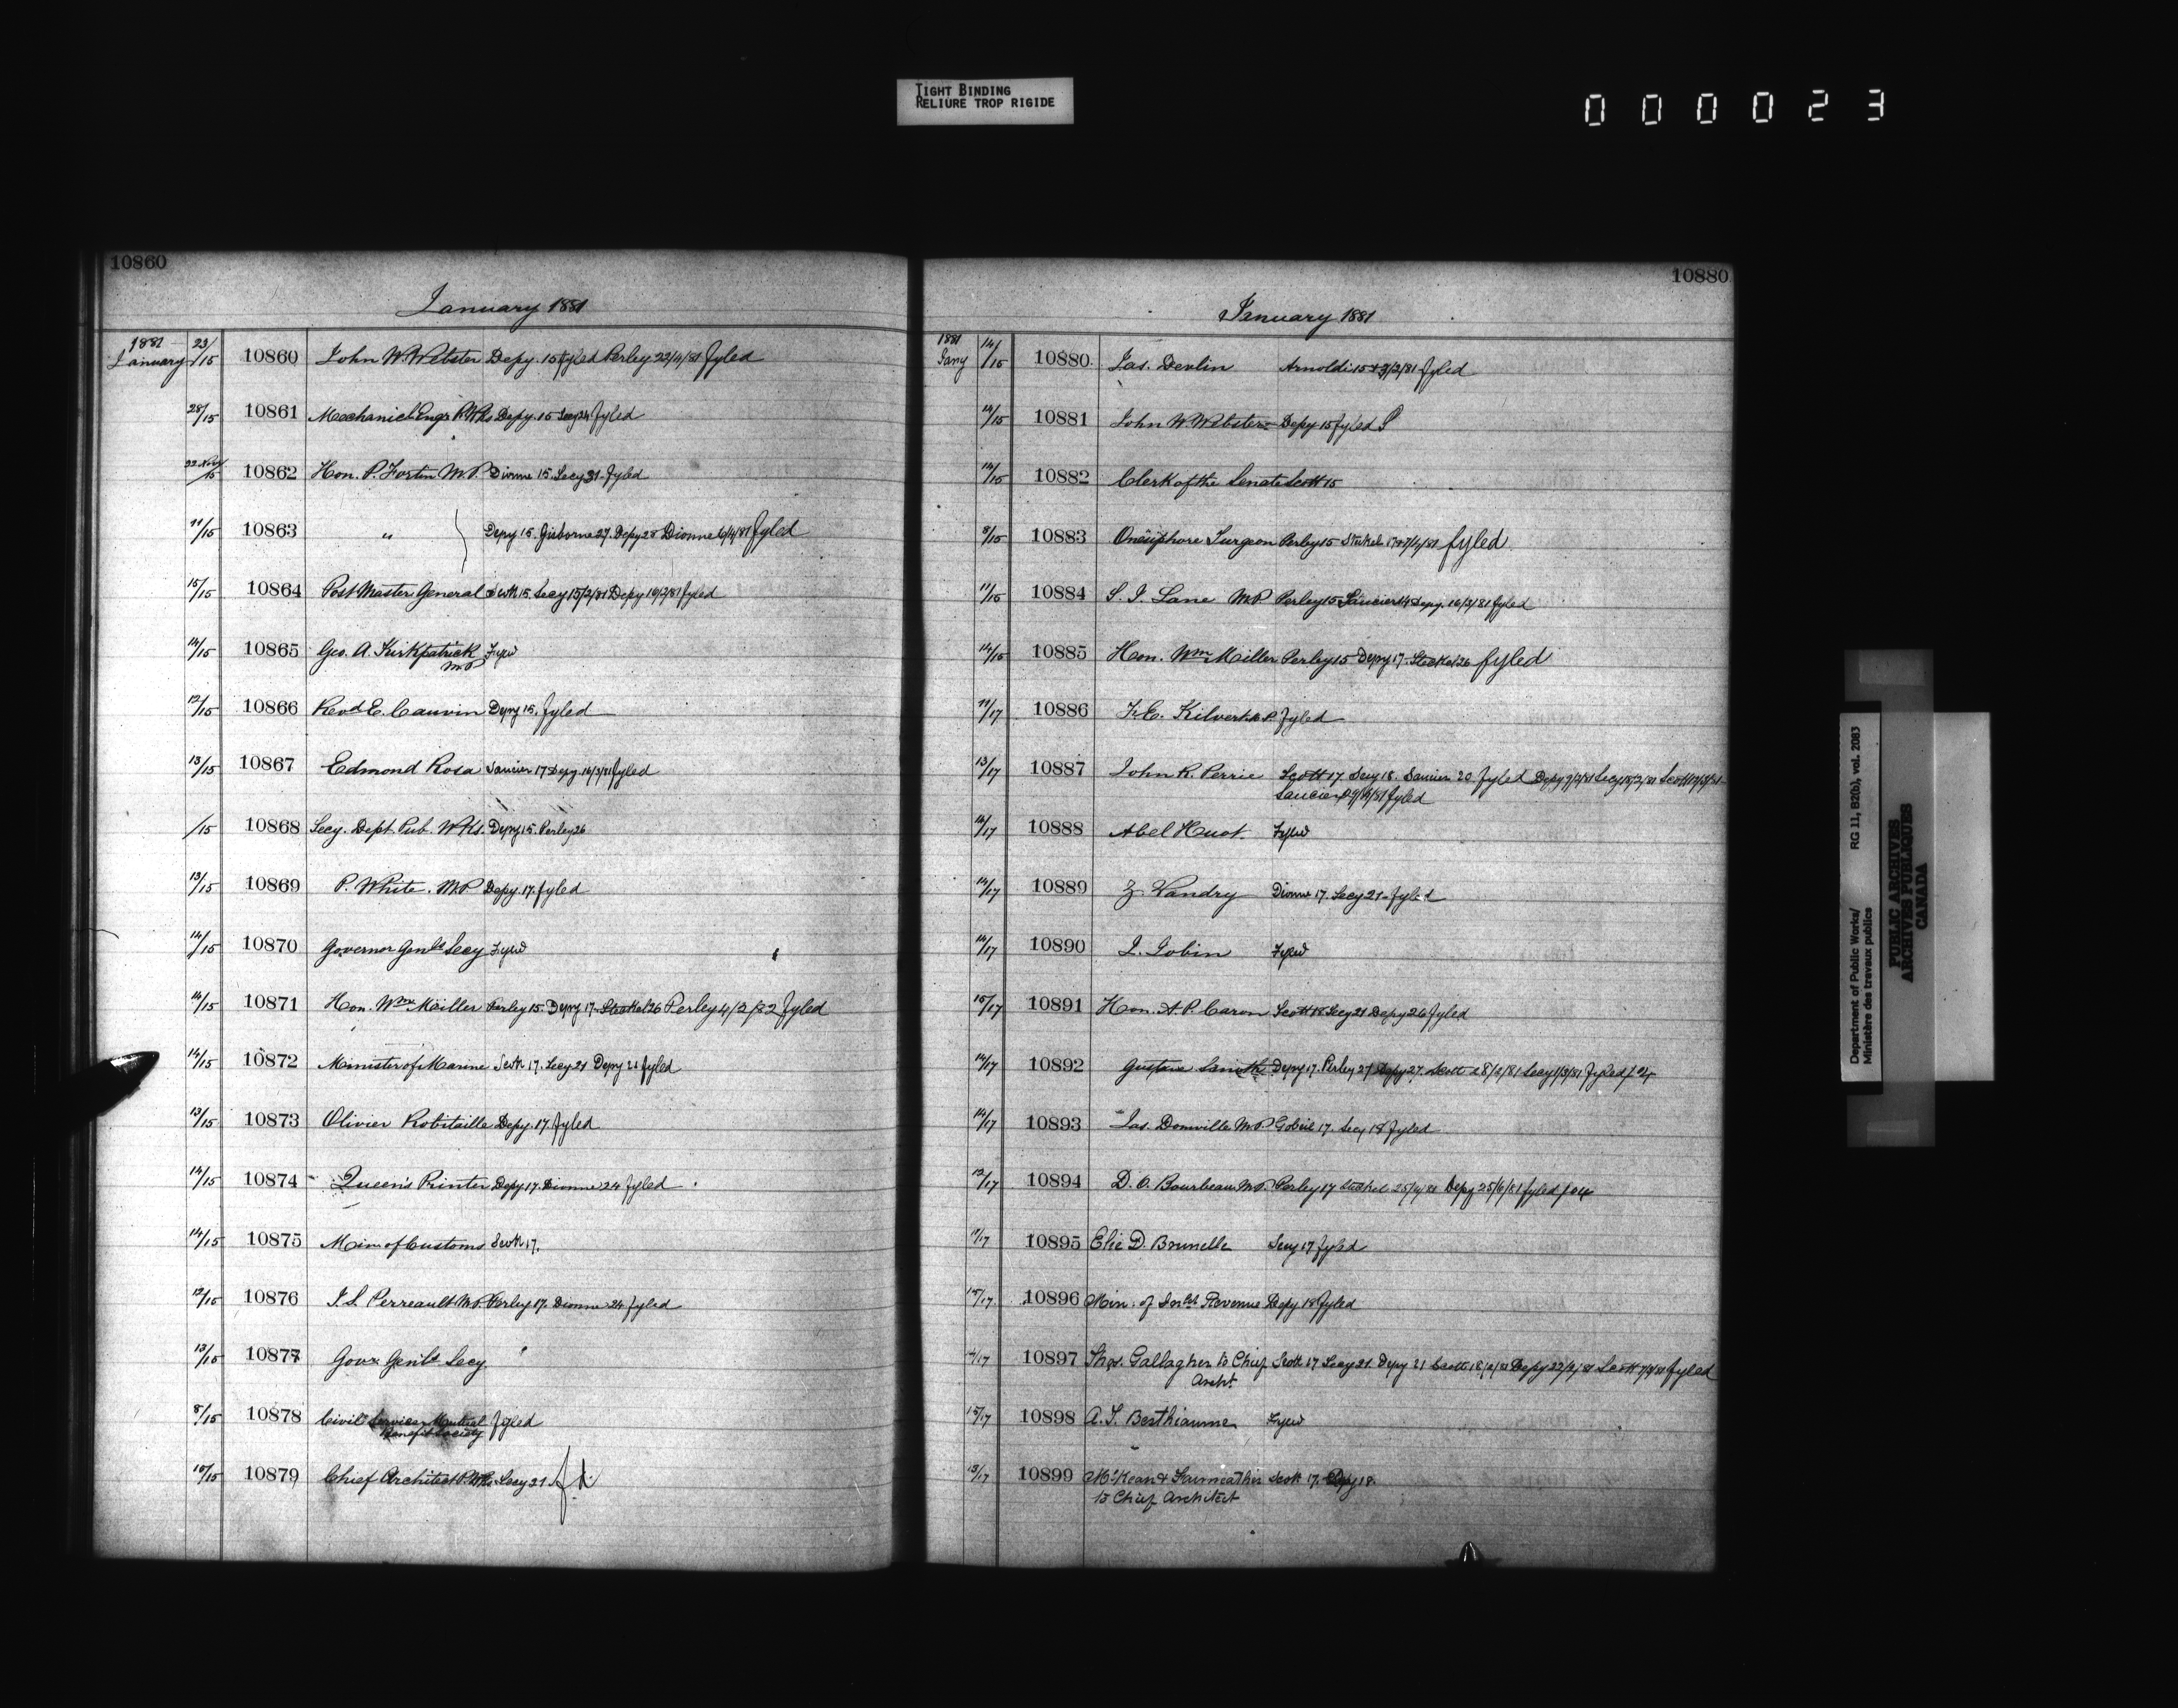 TIGHT BINDING
RELIURE TROP RIGIDE
000023
10860
January 1881
1881
January 23/15 10860 John W. Webster Depy. 15 fyled Perley 23/4/81 fyled
28/15 10861 Mechanicl Engr P. Wks Depy. 15 Secy 24 fyled
22 Nov/15 10862 Hon. P. Fortin M.P. Dionne 15. Secy 31. fyled
11/15 10863 " Depy 15. Gisborne 27. Depy 28 Dionne 6/4/81 fyled
15/15 10864 Post Master General Scott 15. Secy 15/2/81 Depy 16/2/81 fyled
14/15 10865 Geo. A. Kirkpatrick Fyled
M.P.
12/15 10866 Revd E. Cauvin Depy 15. fyled
13/15 10867 Edmond Rosa Saucier 17 Depy. 16/3/81 fyled
/15 10868 Secy. Dept. Pub. Wks. Depy 15. Perley 26
13/15 10869 P. White. M.P. Depy. 17. fyled
14/15 10870 Governor Genls Secy Fyled
14/15 10871 Hon. Wm Miller Perley 15. Depy 17. Steckel 26 Perley 4/2/82 fyled
14/15 10872 Minister of Marine Scott 17. Secy 21 Depy 21 fyled
13/15 10873 Olivier Robitaille Depy. 17 fyled
14/15 10874 Queen's Printer Depy 17. Dionne 24 fyled
14/15 10875 Min. of Customs Scott 17.
12/15 10876 J. S. Perreault M.P. Perley 17. Dionne 24 fyled
13/15 10877 Govr Genls Secy.
8/15 10878 Civil Service Mutual fyled
Benefit Society
15/15 10879 Chief Architect P. Wks. Secy 21
10880
January 1881
1881
Jany 14/15 10880 Jas. Devlin Arnoldi 15 & 3/2/81 fyled
14/15 10881 John W. Webster Depy 15 fyled
14/15 10882 Clerk of the Senate Scott 15
8/15 10883 Onésiphore Turgeon Perley 15 Steckel fyled
11/15 10884 Lane M.P. Perley 15 Saucier Depy. 16/3/81 fyled
14/15 10885 Hon. Wm Miller Perley 15 Depy 17. Steckel 26 fyled
11/17 10886 F. E. Kilvert M.P. fyled
13/17 10887 John R. Perrie Scott 17 Secy 18. Saucier 20 fyled Depy Secy Scott
Saucier fyled
14/17 10888 Abel Huot. Fyled
14/17 10889 Z. Landry Dionne 17. Secy 21. fyled
14/17 10890 L. Gobin Fyled
15/17 10891 Hon. A. P. Caron Scott 18 Secy 21 Depy 26 fyled
14/17 10892 Gustave Smith Depy 17. Perley 27 Depy 27. Scott 28/2/81 Secy 1/3/81 fyled
14/17 10893 Jas. Domville M.P. Gobeil 17. Secy 18 fyled
12/17 10894 D. O. Bourbeau M.P. Perley 17 Steckel Depy fyled
10895 Elie D. Brunelle Secy 17 fyled
15/17 10896 Min. of Inld Revenue Depy 18 fyled
14/17 10897 Thos. Gallagher to Chief Scott 17 Secy 21. Depy 21 Scott 18/2/81 Depy 22/2/81 Scott fyled
Archt.
15/17 10898 A. T. Berthiaume Fyled
13/17 10899 McKean & Fairweather Scott 17. Depy 18.
to Chief Architect
Department of Public Works/
Ministère des travaux publics
RG 11, B2(b), vol. 2083
PUBLIC ARCHIVES
ARCHIVES PUBLIQUES
CANADA